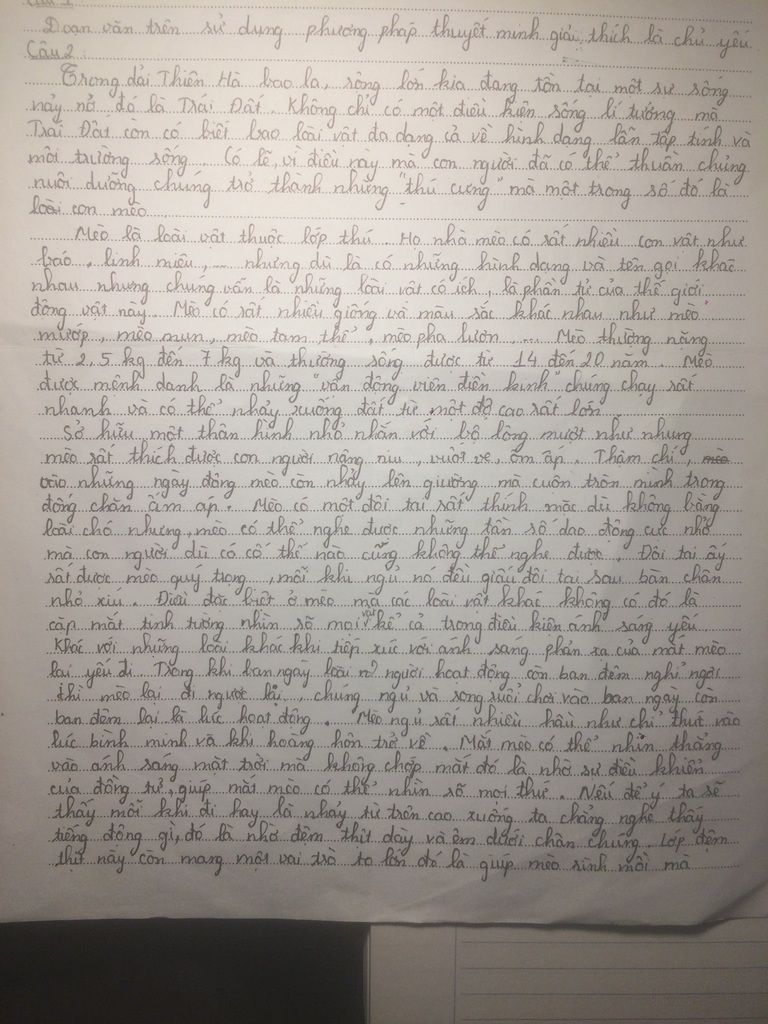 Câu 1
Đoạn văn trên sử dụng phương pháp thuyết minh giải thích là chủ yếu
Câu 2:
Trong dải Thiên Hà bao la, rộng lớn kia đang tồn tại một sự sống
nảy nở đó là Trái Đất. Không chỉ có một điều kiện sống lí tưởng mà
Trái Đất còn có biết bao loài vật đa dạng cả về hình dạng lẫn tập tính và
môi trường sống. Có lẽ, vì điều này mà con người đã có thể thuần chủng
nuôi dưỡng chúng trở thành những "thú cưng" mà một trong số đó là
loài con mèo
Mèo là loài vật thuộc lớp thú. Họ nhà mèo có rất nhiều con vật như
báo, linh miêu,... nhưng dù là có những hình dạng và tên gọi khác
nhau nhưng chúng vẫn là những loài vật có ích, là phần tử của thế giới
động vật này. Mèo có rất nhiều giống và màu sắc khác nhau như mèo
mướp, mèo mun, mèo tam thể, mèo pha lươn,... Mèo thường nặng
từ 2,5 kg đến 7 kg và thường sống được từ 14 đến 20 năm. Mèo
được mệnh danh là những "vận động viên điền kinh" chúng chạy rất
nhanh và có thể nhảy xuống đất từ một độ cao rất lớn
Sở hữu một thân hình nhỏ nhắn với bộ lông mượt như nhung
mèo rất thích được con người nâng niu, vuốt ve, ôm ấp. Thậm chí, mèo
vào những ngày đông mèo còn nhảy lên giường mà cuộn tròn mình trong
đống chăn ấm áp. Mèo có một đôi tai rất thính mặc dù không bằng
loài chó nhưng mèo có thể nghe được những tần số dao động cực nhỏ
mà con người dù có cố thế nào cũng không thể nghe được. Đôi tai ấy
rất được mèo quý trọng, mỗi khi ngủ nó đều giấu đôi tai sau bàn chân
nhỏ xíu. Điều đặc biệt ở mèo mà các loài vật khác không có đó là
cặp mắt tinh tường nhìn rõ mọi vật kể cả trong điều kiện ánh sáng yếu
Khác với những loài khác khi tiếp xúc với ánh sáng phản xạ của mắt mèo
lại yếu đi. Trong khi ban ngày loài người hoạt động còn ban đêm nghỉ ngơi
thì mèo lại đi ngược lại, chúng ngủ và rong ruổi chơi vào ban ngày còn
ban đêm lại là lúc hoạt động. Mèo ngủ rất nhiều hầu như chỉ thức vào
lúc bình minh và khi hoàng hôn trở về. Mắt mèo có thể nhìn thẳng
vào ánh sáng mặt trời mà không chớp mắt đó là nhờ sự điều khiển
của đồng tử, giúp mắt mèo có thể nhìn rõ mọi thứ. Nếu để ý ta sẽ
thấy mỗi khi đi hay là nhảy từ trên cao xuống ta chẳng nghe thấy
tiếng động gì, đó là nhờ đệm thịt dày và êm dưới chân chúng. Lớp đệm
thịt này còn mang một vai trò to lớn đó là giúp mèo rình mồi mà